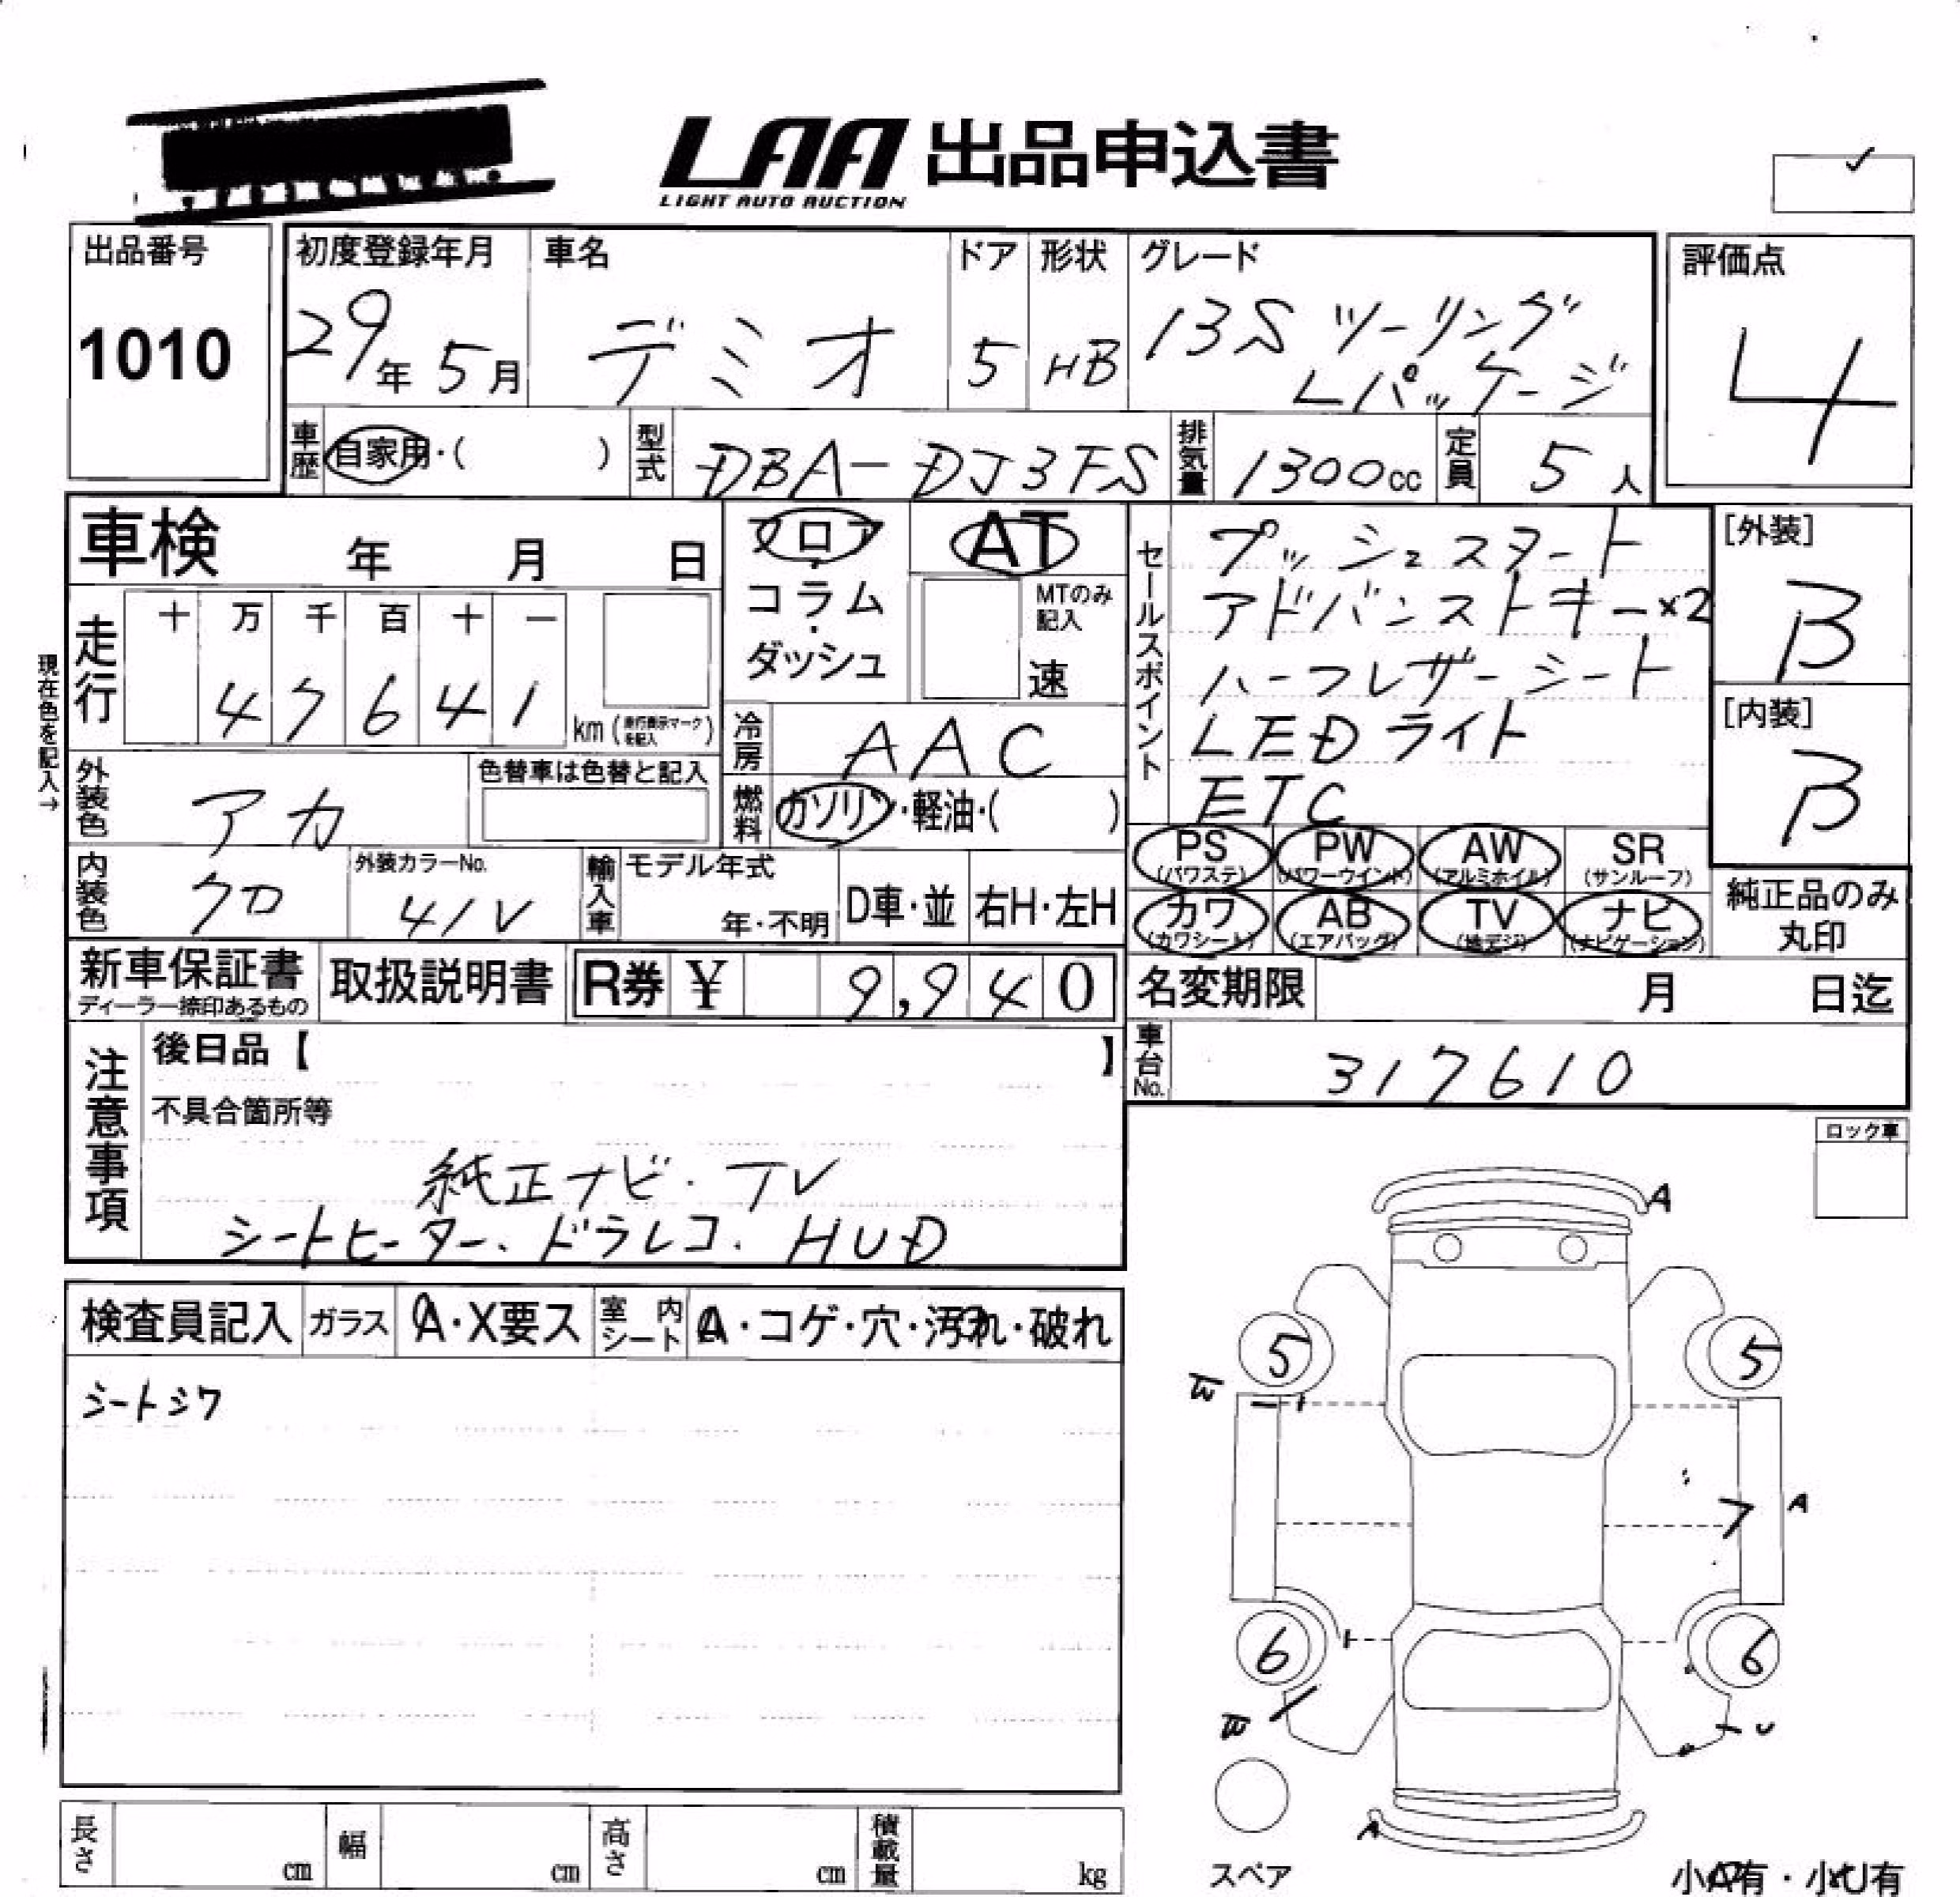 LAA 出品申込書
LIGHT AUTO AUCTION
出品番号
1010
初度登録年月
29年 5月
車名
デミオ
ドア
5
形状
HB
グレード
13S ツーリング
Lパッケージ
評価点
4
車歴 自家用・( )
型式 DBA-DJ3FS
排気量 1300cc
定員 5人
車検 年 月 日
フロア
・
コラム
・
ダッシュ
AT
MTのみ
記入
速
セールスポイント
プッシュスタート
アドバンストキー×2
ハーフレザーシート
LEDライト
ETC
[外装]
B
[内装]
B
現在色を記入→
走行
十 万 千 百 十 一
4 7 6 4 1
km (走行表示マークを記入)
冷房 AAC
燃料 ガソリン・軽油・( )
外装色 アカ
色替車は色替と記入
内装色 クロ
外装カラーNo.
41V
輸入車
モデル年式
年・不明
D車・並
右H・左H
PS
(パワステ)
PW
(パワーウインド)
AW
(アルミホイル)
SR
(サンルーフ)
カワ
(カワシート)
AB
(エアバッグ)
TV
(地デジ)
ナビ
(ナビゲーション)
純正品のみ
丸印
新車保証書
ディーラー捺印あるもの
取扱説明書
R券 ¥ 9,940
名変期限 月 日迄
車台No. 317610
注意事項
後日品【 】
不具合箇所等
純正ナビ・TV
シートヒーター、ドラレコ、HUD
ロック車
検査員記入
ガラス A・X要ス
室内シート A・コゲ・穴・汚れ・破れ
シートシワ
A
5
5
W
7
A
6
6
W
U
A
スペア
小A有・小U有
長さ cm
幅 cm
高さ cm
積載量 kg